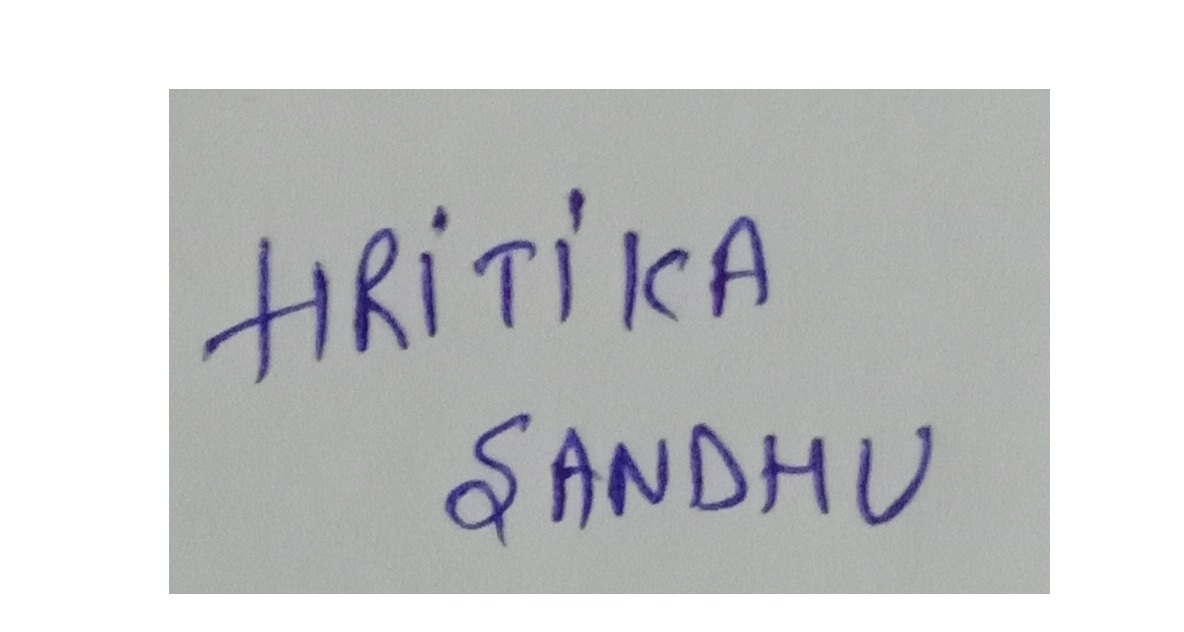 HRiTiKA
SANDHU